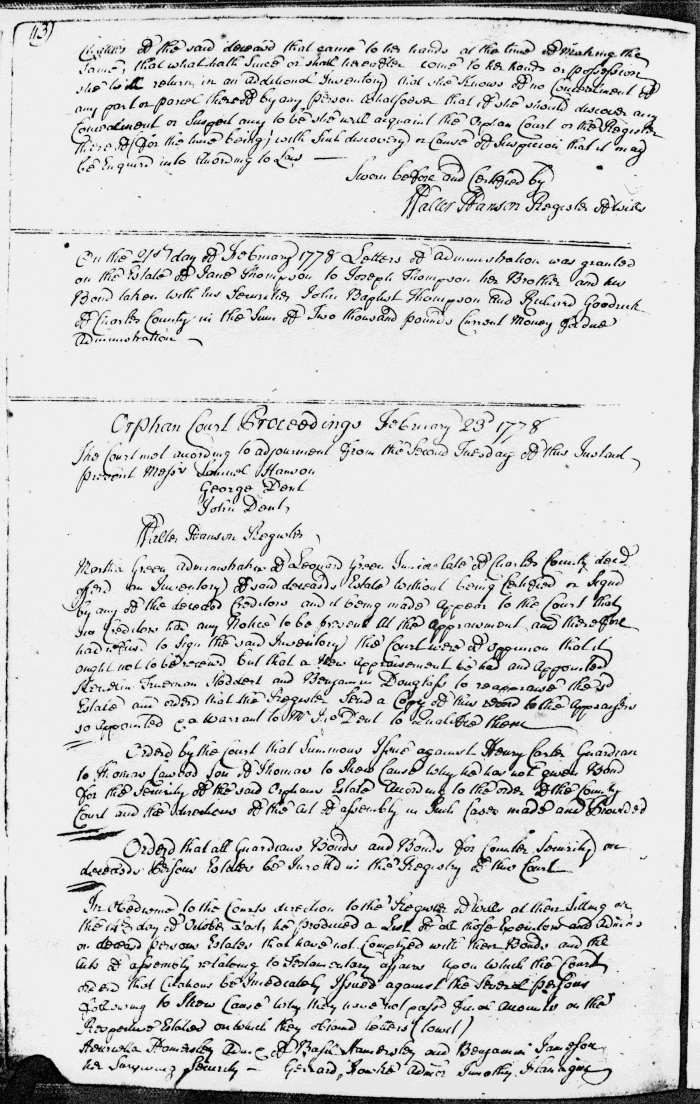 113)
Chattels of the said deceased that came to her hands at the time of Making the
Same, that what hath Since or shall hereafter come to her hands or possession
she will return in an additional Inventory that she Knows of no Concealment of
any part or parcel thereof by any person whatsoever that if she should discover any
Concealment or Suspect any to be she will acquaint the Orphan Court or the Register
thereof (for the time being) with Such discovery or Cause of Suspicion that it may
be Enquired into according to Law —
Sworn before and Certified by
Walter Hanson Register of wills
On the 21st day of February 1778 Letters of administration was granted
on the Estate of Jane Thompson to Joseph Thompson her Brother and his
Bond taken with his Securities John Baptist Thompson and Richard Goodrick
of Charles County in the Sum of Two thousand pounds Current Money for due
administration —
Orphan Court Proceedings February 23d 1778
The Court met according to adjournment from the Second Tuesday of this Instant
present Messrs Samuel Hanson
George Dent
John Dent,
Walter Hanson Register,
Martha Green administratrix of Leonard Green Junior late of Charles County decd
offerd an Inventory of said deceasds Estate without being Certified or Signd
by any of the deceasd Creditors and it being made Appear to the Court that
no Creditors had any Notice to be present at the Appraisment and therefore
had refused to Sign the said Inventory the Court were of oppinion that it
ought not to be received but that a New Appraisement be had and Appointed
Truman Stoddert and Benjamin Douglass to reappraise the sd
Estate and orderd that the Register Send a Copy of this record to the Appraisers
so Appointed & a Warrant to Mr Jno Dent to Qualifie them
Orderd by the Court that Summons Issue against Henry Carter Guardian
to Thomas son of Thomas to Shew Cause why he has not given Bond
for the Security of the said Orphans Estate According to the order of the County
Court and the directions of the Act of assembly in Such Cases made and Provided
Orderd that all Guardians Bonds and Bonds for Counter Security on
deceasds persons Estates be Inrolld in the Registry of this Court
In Obedience to the Courts direction to the Register of Wills at their Sitting on
the 14th day of October Last, he produced a List of all those Executors and Admrs
on deceasd persons Estates that have not Complyed with their Bonds and the
Acts of assembly relateing to Testamentary affairs upon which the Court
orderd that Citations be Imediately Issued against the Several persons
following to Shew Cause why they have not passd final Accounts on the
Respective Estates on which they obtaind letters (towit)
Henrietta Hamersley Admx of Basil Hamersley and Benjamin Jameson
her Surviving Security — Gerrard Fowke Admor Timothy Flanigin